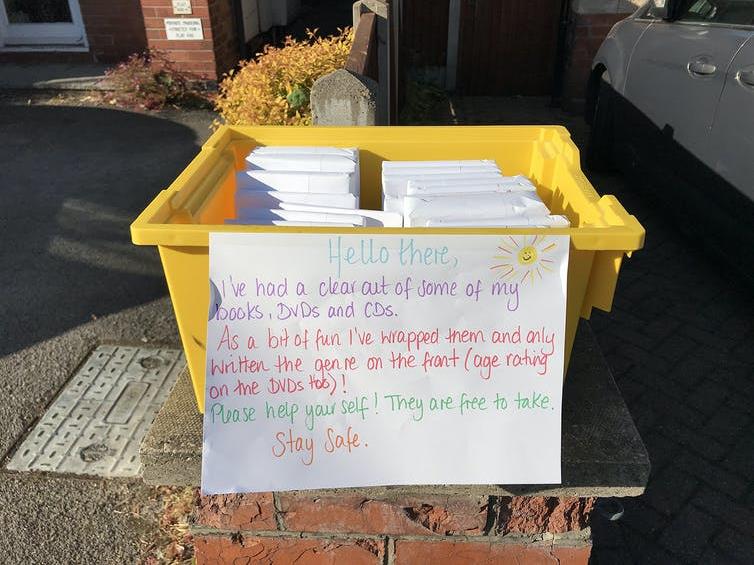 Hello there,
I've had a clear out of some of my
books, DVDs and CDs.
As a bit of fun I've wrapped them and only
written the genre on the front (age rating
on the DVDs too)!
Please help your self! They are free to take.
Stay Safe.